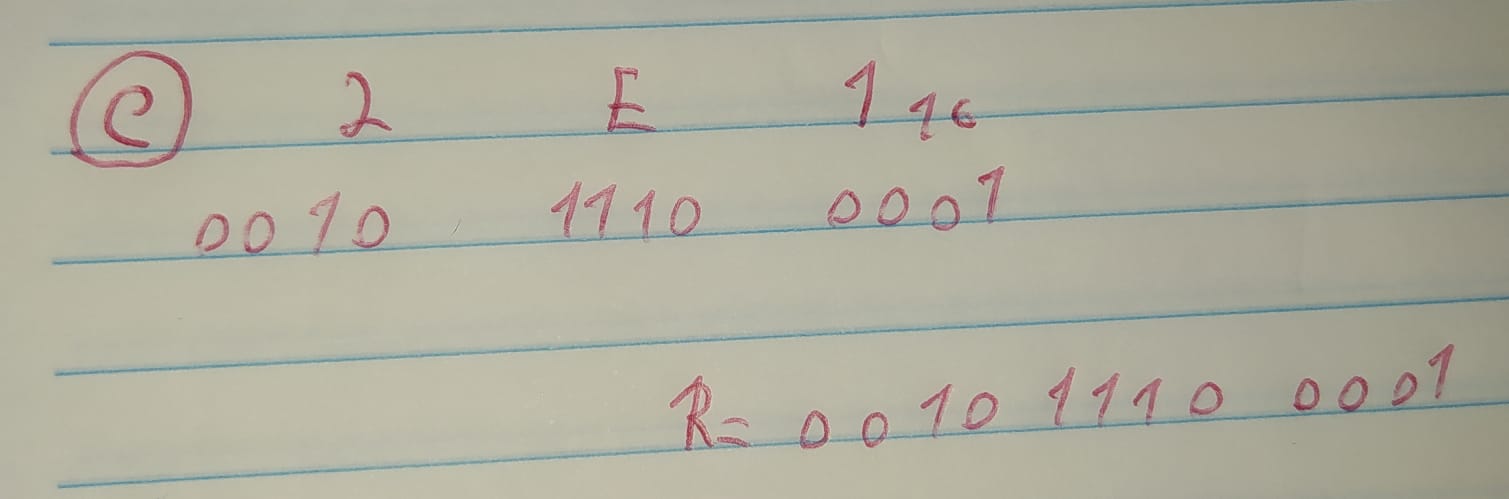 C 2 E 1 16
0010 1110 0001
R= 0010 1110 0001